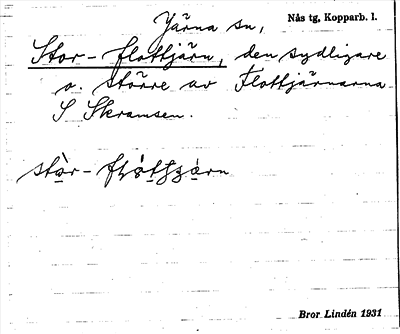 Järna sn, Nås tg, Kopparb. l.
Stor-flottjärn, den sydligare
o. större av Flottjärnarna
S Skramsen.
Bror Lindén 1931